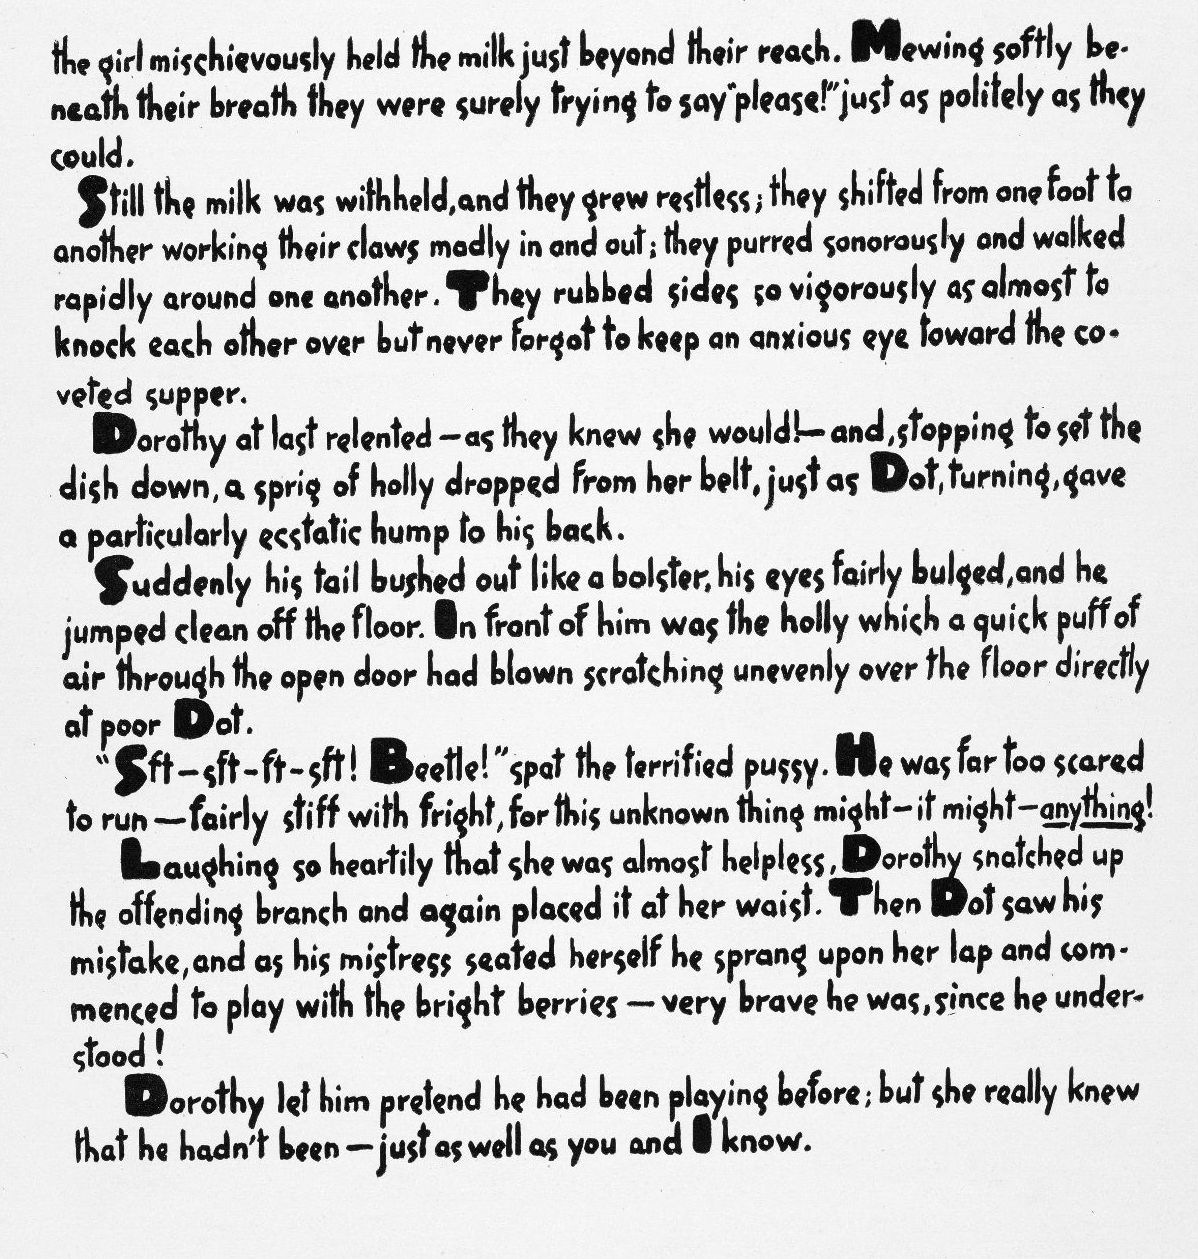 the girl mischievously held the milk just beyond their reach. Mewing softly be-
neath their breath they were surely trying to say "please!" just as politely as they
could.
Still the milk was withheld, and they grew restless; they shifted from one foot to
another working their claws madly in and out; they purred sonorously and walked
rapidly around one another. They rubbed sides so vigorously as almost to
knock each other over but never forgot to keep an anxious eye toward the co-
veted supper.
Dorothy at last relented — as they knew she would! — and, stopping to set the
dish down, a sprig of holly dropped from her belt, just as Dot, turning, gave
a particularly ecstatic hump to his back.
Suddenly his tail bushed out like a bolster, his eyes fairly bulged, and he
jumped clean off the floor. In front of him was the holly which a quick puff of
air through the open door had blown scratching unevenly over the floor directly
at poor Dot.
"Sft-sft-ft-sft! Beetle!" spat the terrified pussy. He was far too scared
to run — fairly stiff with fright, for this unknown thing might — it might — anything!
Laughing so heartily that she was almost helpless, Dorothy snatched up
the offending branch and again placed it at her waist. Then Dot saw his
mistake, and as his mistress seated herself he sprang upon her lap and com-
menced to play with the bright berries — very brave he was, since he under-
stood!
Dorothy let him pretend he had been playing before; but she really knew
that he hadn't been — just as well as you and I know.